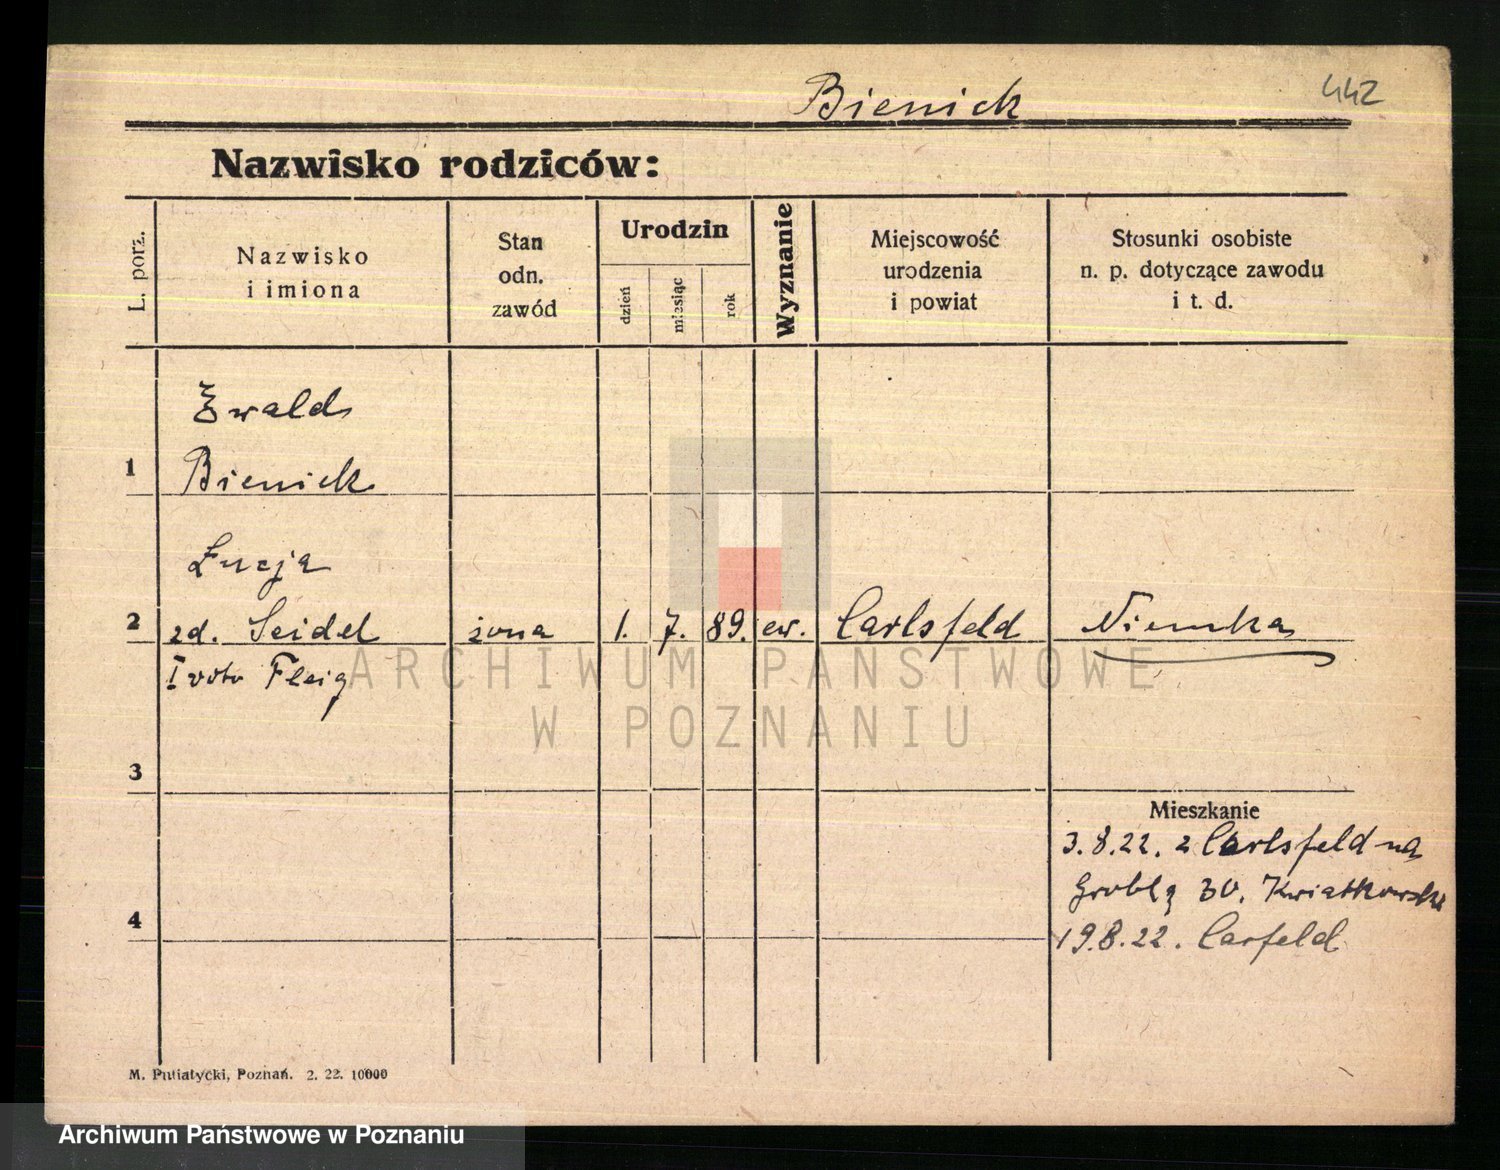 Bienick
442
Nazwisko rodziców:
L. porz.
Nazwisko
i imiona
Stan
odn.
zawód
Urodzin
dzień
miesiąc
rok
Wyznanie
Miejscowość
urodzenia
i powiat
Stosunki osobiste
n. p. dotyczące zawodu
i t. d.
Ewald
1 Bienick
Łucja
2 zd. Seidel żona 1. 7. 89. ew. Carlsfeld Niemka
I voto Fleig
ARCHIWUM PAŃSTWOWE
W POZNANIU
3
Mieszkanie
3.8.22. z Carlsfeld na
Groblą 30. Kwiatkowski
4
19.8.22. Carfeld
M. Putiatycki, Poznań. 2. 22. 10000
Archiwum Państwowe w Poznaniu